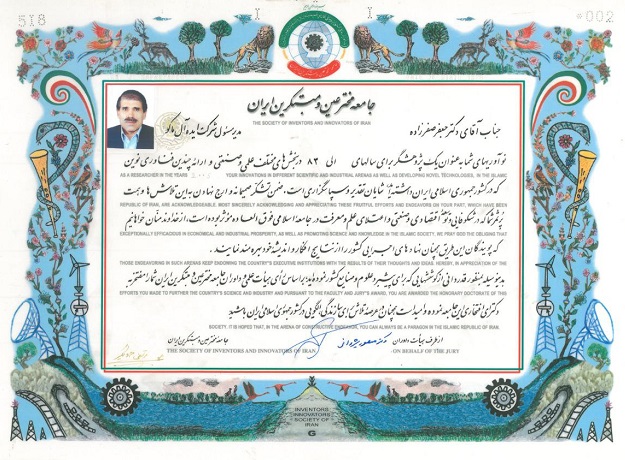 518
002
جامعه مخترعین و مبتکرین ایران
THE SOCIETY OF INVENTORS AND INNOVATORS OF IRAN
جناب آقای دکتر جعفر صفرزاده
مدیر مسئول شرکت ایده آل ماکو
نوآوریهای شما به عنوان یک پژوهشگر برای سالهای الی ۸۳ در بخش های مختلف علمی و صنعتی و ارائه چندین فناوری نوین
AS A RESEARCHER IN THE YEARS YOUR INNOVATIONS IN DIFFERENT SCIENTIFIC AND INDUSTRIAL ARENAS AS WELL AS DEVELOPING NOVEL TECHNOLOGIES, IN THE ISLAMIC
که در کشور جمهوری اسلامی ایران داشته اید شایان تقدیر و سپاسگزاری است، ضمن تشکر صمیمانه و ارج نهادن به این تلاش ها و همت
REPUBLIC OF IRAN, ARE ACKNOWLEDGEABLE, MOST SINCERELY ACKNOWLEDGING AND APPRECIATING THESE FRUITFUL EFFORTS AND ENDEAVORS ON YOUR PART, WHICH HAVE BEEN
پرثمر شما که در شکوفایی و توسعه اقتصادی و صنعتی و اعتلای علم و معرفت در جامعه اسلامی فوق العاده مؤثر بوده است، از خداوند منان خواهانیم
EXCEPTIONALLY EFFICACIOUS IN ECONOMICAL AND INDUSTRIAL PROSPERITY, AS WELL AS PROMOTING SCIENCE AND KNOWLEDGE IN THE ISLAMIC SOCIETY, WE PRAY GOD THE
که پویندگان این طریق همچنان نهادهای اجرایی کشور را از نتایج افکار و اندیشه خود بهره مند نمایند.
THOSE ENDEAVORING IN SUCH ARENAS KEEP ENDOWING THE COUNTRY'S EXECUTIVE INSTITUTIONS WITH THE RESULTS OF THEIR THOUGHTS AND IDEAS. HEREBY, IN APPRECIATION OF THE
بدینوسیله به منظور قدردانی از کوششهایی که برای پیشبرد علوم و صنایع کشور نموده اید بر اساس رأی هیأت علمی و داوران جامعه مخترعین و مبتکرین ایران شما را مفتخر به
EFFORTS YOU MADE TO FURTHER THE COUNTRY'S SCIENCE AND INDUSTRY AND PURSUANT TO THE FACULTY AND JURY'S AWARD, YOU ARE AWARDED THE HONORARY DOCTORATE OF THIS
دکترای افتخاری این جامعه نموده و امید است همچنان در عرصه تلاش و سازندگی الگویی در کشور جمهوری اسلامی ایران باشید
SOCIETY. IT IS HOPED THAT, IN THE ARENA OF CONSTRUCTIVE ENDEAVOR, YOU CAN ALWAYS BE A PARAGON IN THE ISLAMIC REPUBLIC OF IRAN.
از طرف هیأت داوران
جامعه مخترعین و مبتکرین ایران
THE SOCIETY OF INVENTORS AND INNOVATORS OF IRAN
ON BEHALF OF THE JURY
INVENTORS
INNOVATORS
SOCIETY OF
IRAN
G